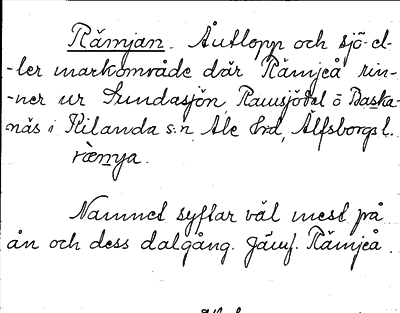 Rämjan. Åutlopp och sjö- el-
-ler markområde där Rämjeå rin-
-ner ur Sundasjön, Ramsjödal ö Baska-
näs i Kilanda s:n, Ale hrd, Älfsborgs l.
ræmya.
Namnet syftar väl mest på
ån och dess dalgång. Jämf. Rämjeå.